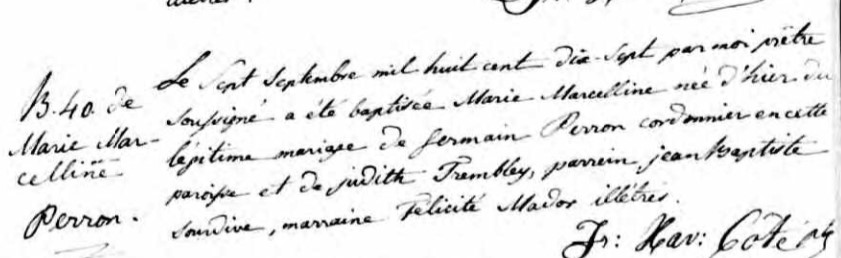 B. 40. de
Marie Mar-
celline
Perron.
Le Sept Septembre mil huit cent dix-Sept par moi prêtre
soussigné a été baptisée Marie Marcelline née d'hier du
légitime mariage de Germain Perron cordonnier en cette
paroisse et de judith Trembley, parrein jean Baptiste
Sourdive, marraine Felicité Mador illétrés.
Fr: Xav: Coté